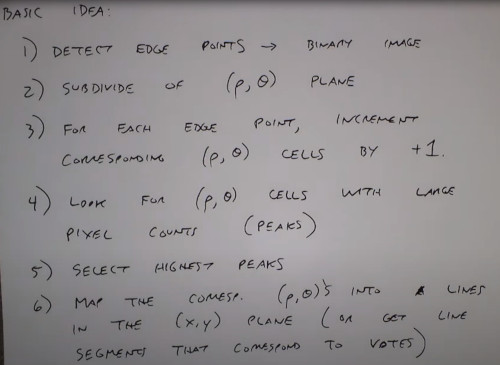 BASIC IDEA:
1) DETECT EDGE POINTS → BINARY IMAGE
2) SUBDIVIDE OF (ρ, θ) PLANE
3) FOR EACH EDGE POINT, INCREMENT
CORRESPONDING (ρ, θ) CELLS BY +1.
4) LOOK FOR (ρ, θ) CELLS WITH LARGE
PIXEL COUNTS (PEAKS)
5) SELECT HIGHEST PEAKS
6) MAP THE CORRESP. (ρ, θ)'S INTO LINES
IN THE (x, y) PLANE (OR GET LINE
SEGMENTS THAT CORRESPOND TO VOTES)